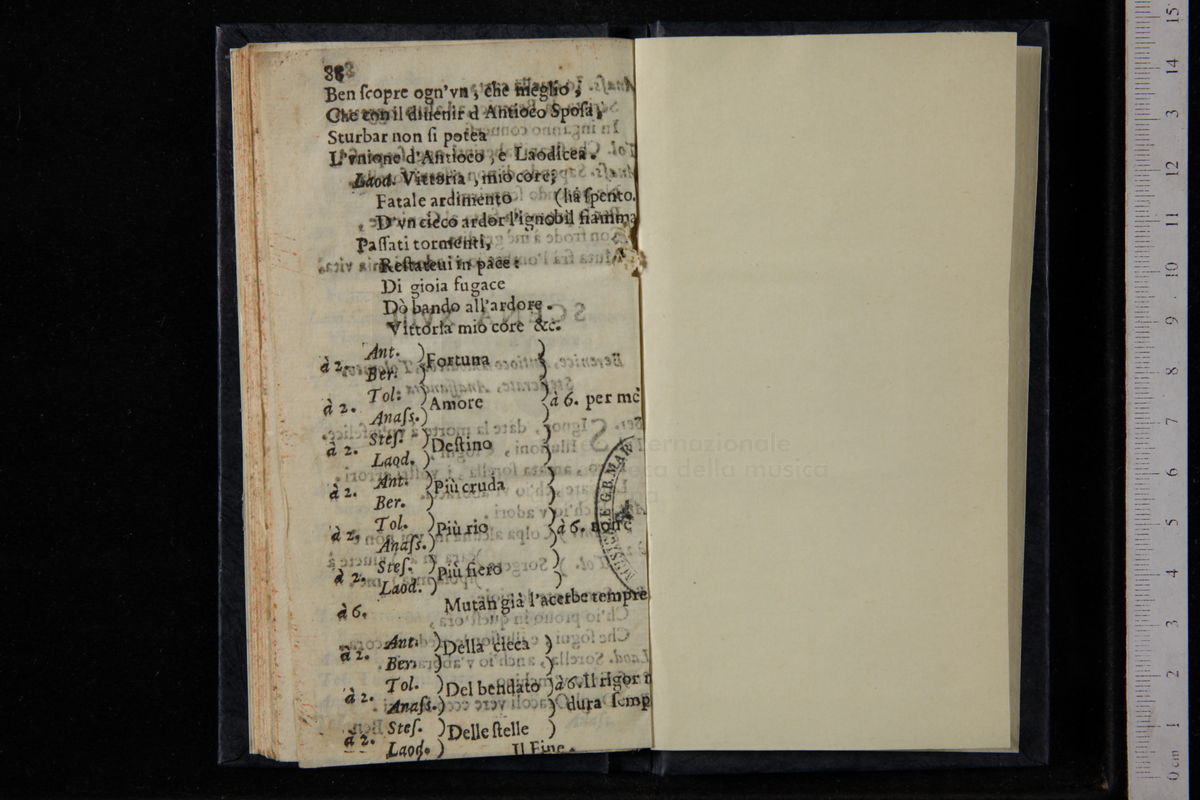 88
Ben ſcopre ogn'vn, che meglio,
Che con il diuenir d'Antioco Spoſa,
Sturbar non ſi potea
L'vnione d'Antioco, e Laodicea.
Laod. Vittoria, mio core;
Fatale ardimento (hà ſpento.
D'vn cieco ardor l'ignobil fiamma
Paſſati tormenti,
Reſtateui in pace:
Di gioia fugace
Dò bando all'ardore.
Vittoria mio core &c.
à 2. Ant. Ber. ) Fortuna )
à 2. Tol: Anaſſ. ) Amore ) à 6. per mè
à 2. Steſ. Laod. ) Deſtino )
à 2. Ant. Ber. ) Più cruda )
à 2. Tol. Anaſſ. ) Più rio ) à 6. non è
à 2. Steſ. Laod. ) Più fiero )
à 6. Mutan già l'acerbe tempre
à 2. Ant. Ber. ) Della cieca )
à 2. Tol. Anaſſ. ) Del bendato ) à 6. Il rigor
dura ſemp
à 2. Steſ. Laod. ) Delle ſtelle )
Il Fine.
internazionale
della musica